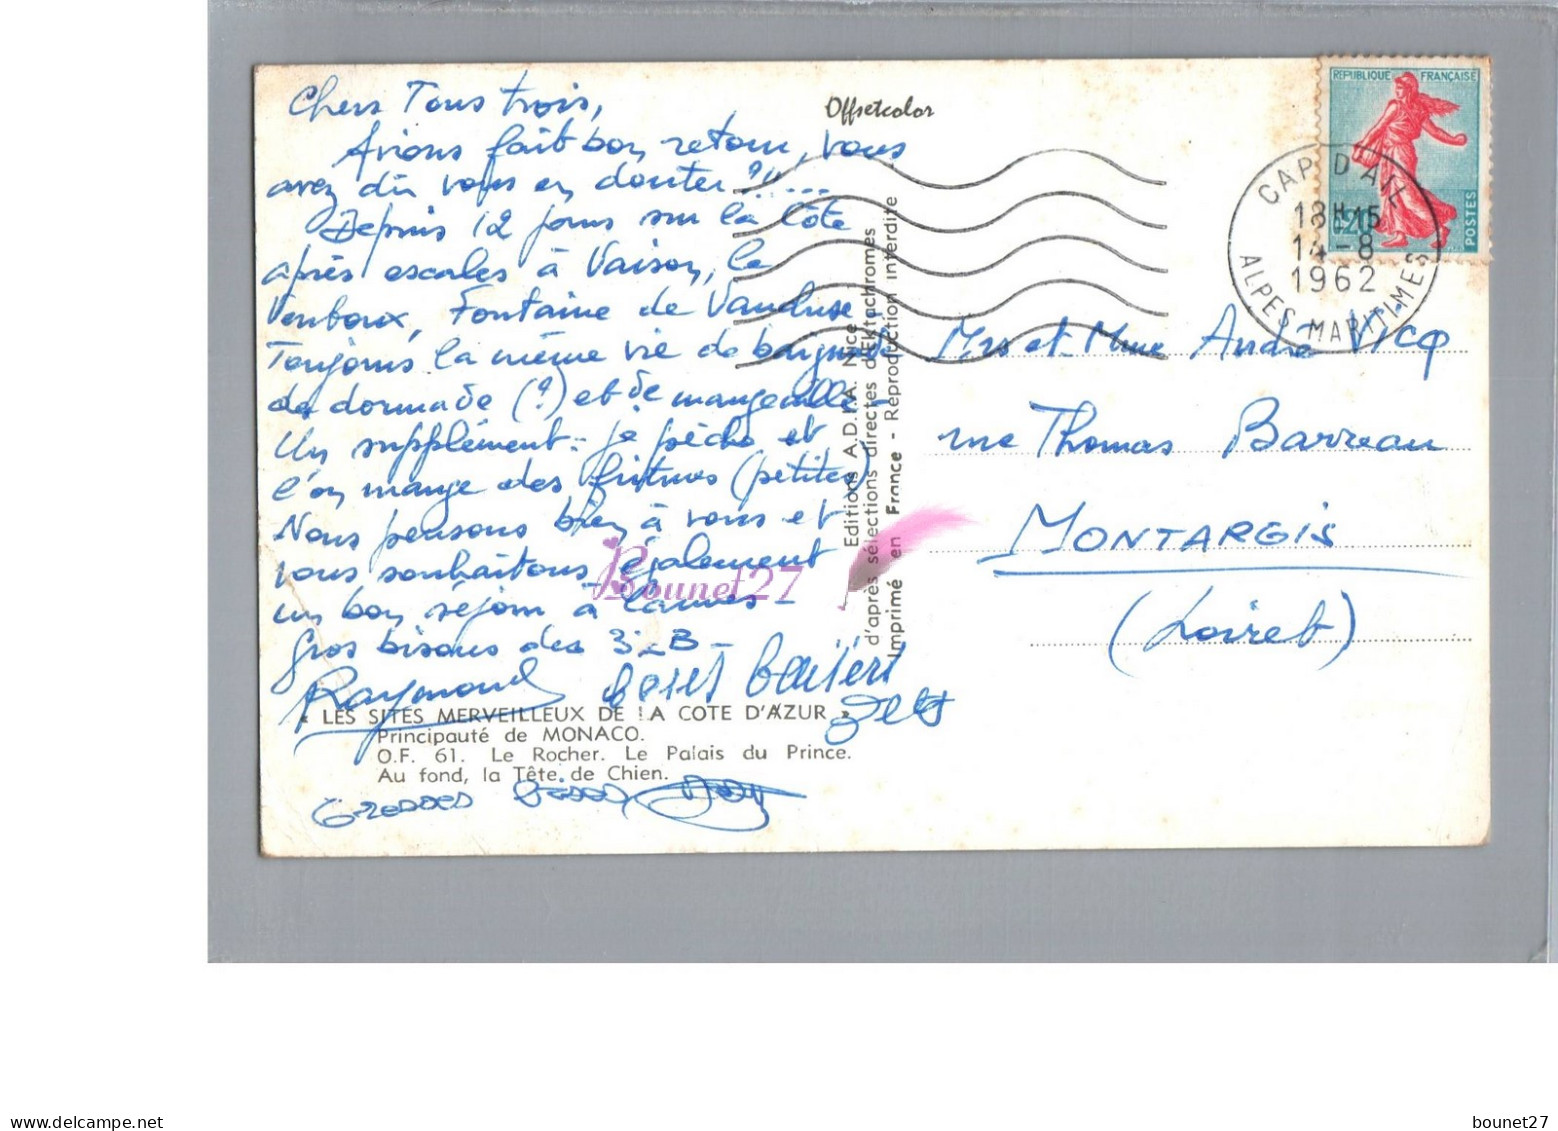 Chers Tous trois,
Avions fait bon retour, vous
avez dû vous en douter ?!!...
Depuis 12 jours sur la Côte
après escales à Vaison, le
Ventoux, Fontaine de Vaucluse
Toujours la même vie de baignade
de dormade (?) et de mangeaille -
Un supplément : je pêche et
l'on mange des fritures (petites)
Nous pensons bien à vous et
vous souhaitons également
un bon séjour à Cannes -
Gros bisous des 3 B -
Raymond
« LES SITES MERVEILLEUX DE LA COTE D'AZUR »
Principauté de MONACO.
O.F. 61. Le Rocher. Le Palais du Prince.
Au fond, la Tête de Chien.
Grosses bises
Offsetcolor
Editions A.D.I.A. Nice
d'après sélections directes d'Ektachromes
Imprimé en France - Reproduction interdite
REPUBLIQUE FRANÇAISE
POSTES
CAP D'AIL
18H15
14-8
1962
ALPES MARITIMES
Mrs et Mme André VICQ
rue Thomas Barreau
MONTARGIS
(Loiret)
Bounet27
www.delcampe.net
bounet27